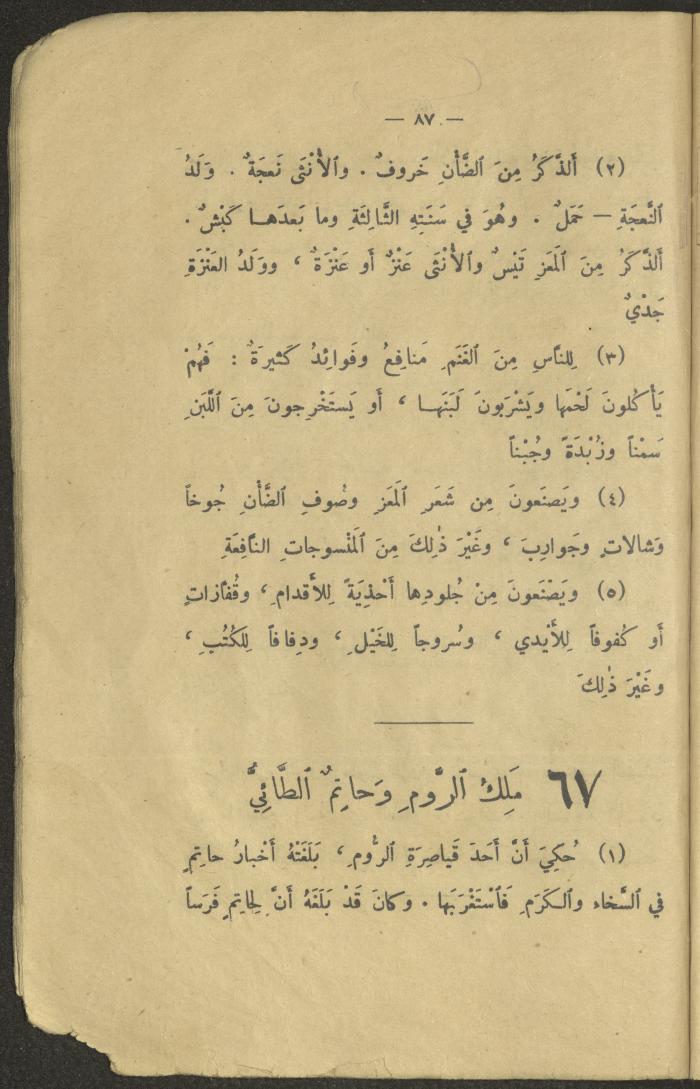 — ٨٧ —
(٢) أَلذَّكَرُ مِنَ ٱلضَّأْنِ خَروفٌ . وٱلأُنْثَى نَعجَةٌ . وَلَدُ
ٱلنَّعجَةِ — حَمَلٌ . وهُوَ في سَنَتِهِ الثَّالِثَةِ وما بَعدَهـا كَبْشٌ .
أَلذَّكَرُ مِنَ ٱلمَعَزِ تَيْسٌ وٱلأُنْثَى عَنْزٌ أَو عَنْزَةٌ ، ووَلَدُ العَنْزَةِ
جَدْيٌ
(٣) لِلنَّاسِ مِنَ ٱلغَنَمِ مَنافِعُ وفَوائِدُ كَثيرَةٌ : فَهُمْ
يَأْكُلونَ لَحْمَها ويَشْرَبونَ لَبَنَهـا ، أَو يَستَخْرِجونَ مِنَ ٱللَّبَنِ
سَمْناً وزُبْدَةً وجُبْناً
(٤) ويَصنَعونَ مِن شَعَرِ ٱلمَعَزِ وصُوفِ ٱلضَّأْنِ جُوخاً
وَشالاتٍ وجَوارِبَ ، وغَيْرَ ذٰلِكَ مِنَ ٱلمَنْسوجاتِ النَّافِعَةِ
(٥) ويَصْنَعونَ مِنْ جُلودِها أَحْذِيَةً لِلأَقدامِ ، وقُفَّازاتٍ
أَو كُفوفاً لِلأَيْدي ، وسُروجاً لِلخَيْلِ ، ودِفافاً لِلكُتُبِ ،
وغَيْرَ ذٰلِكَ
٦٧ مَلِكُ ٱلرُّومِ وَحاتِمٌ ٱلطَّائِيُّ
(١) حُكِيَ أَنَّ أَحَدَ قَياصِرَةِ ٱلرُّومِ ، بَلَغَتْهُ أَخْبارُ حاتِمٍ
في ٱلسَّخاء وٱلكَرَمِ فَٱسْتَغْرَبَها . وكانَ قَدْ بَلَغَهُ أَنَّ لِحاتِمٍ فَرَساً